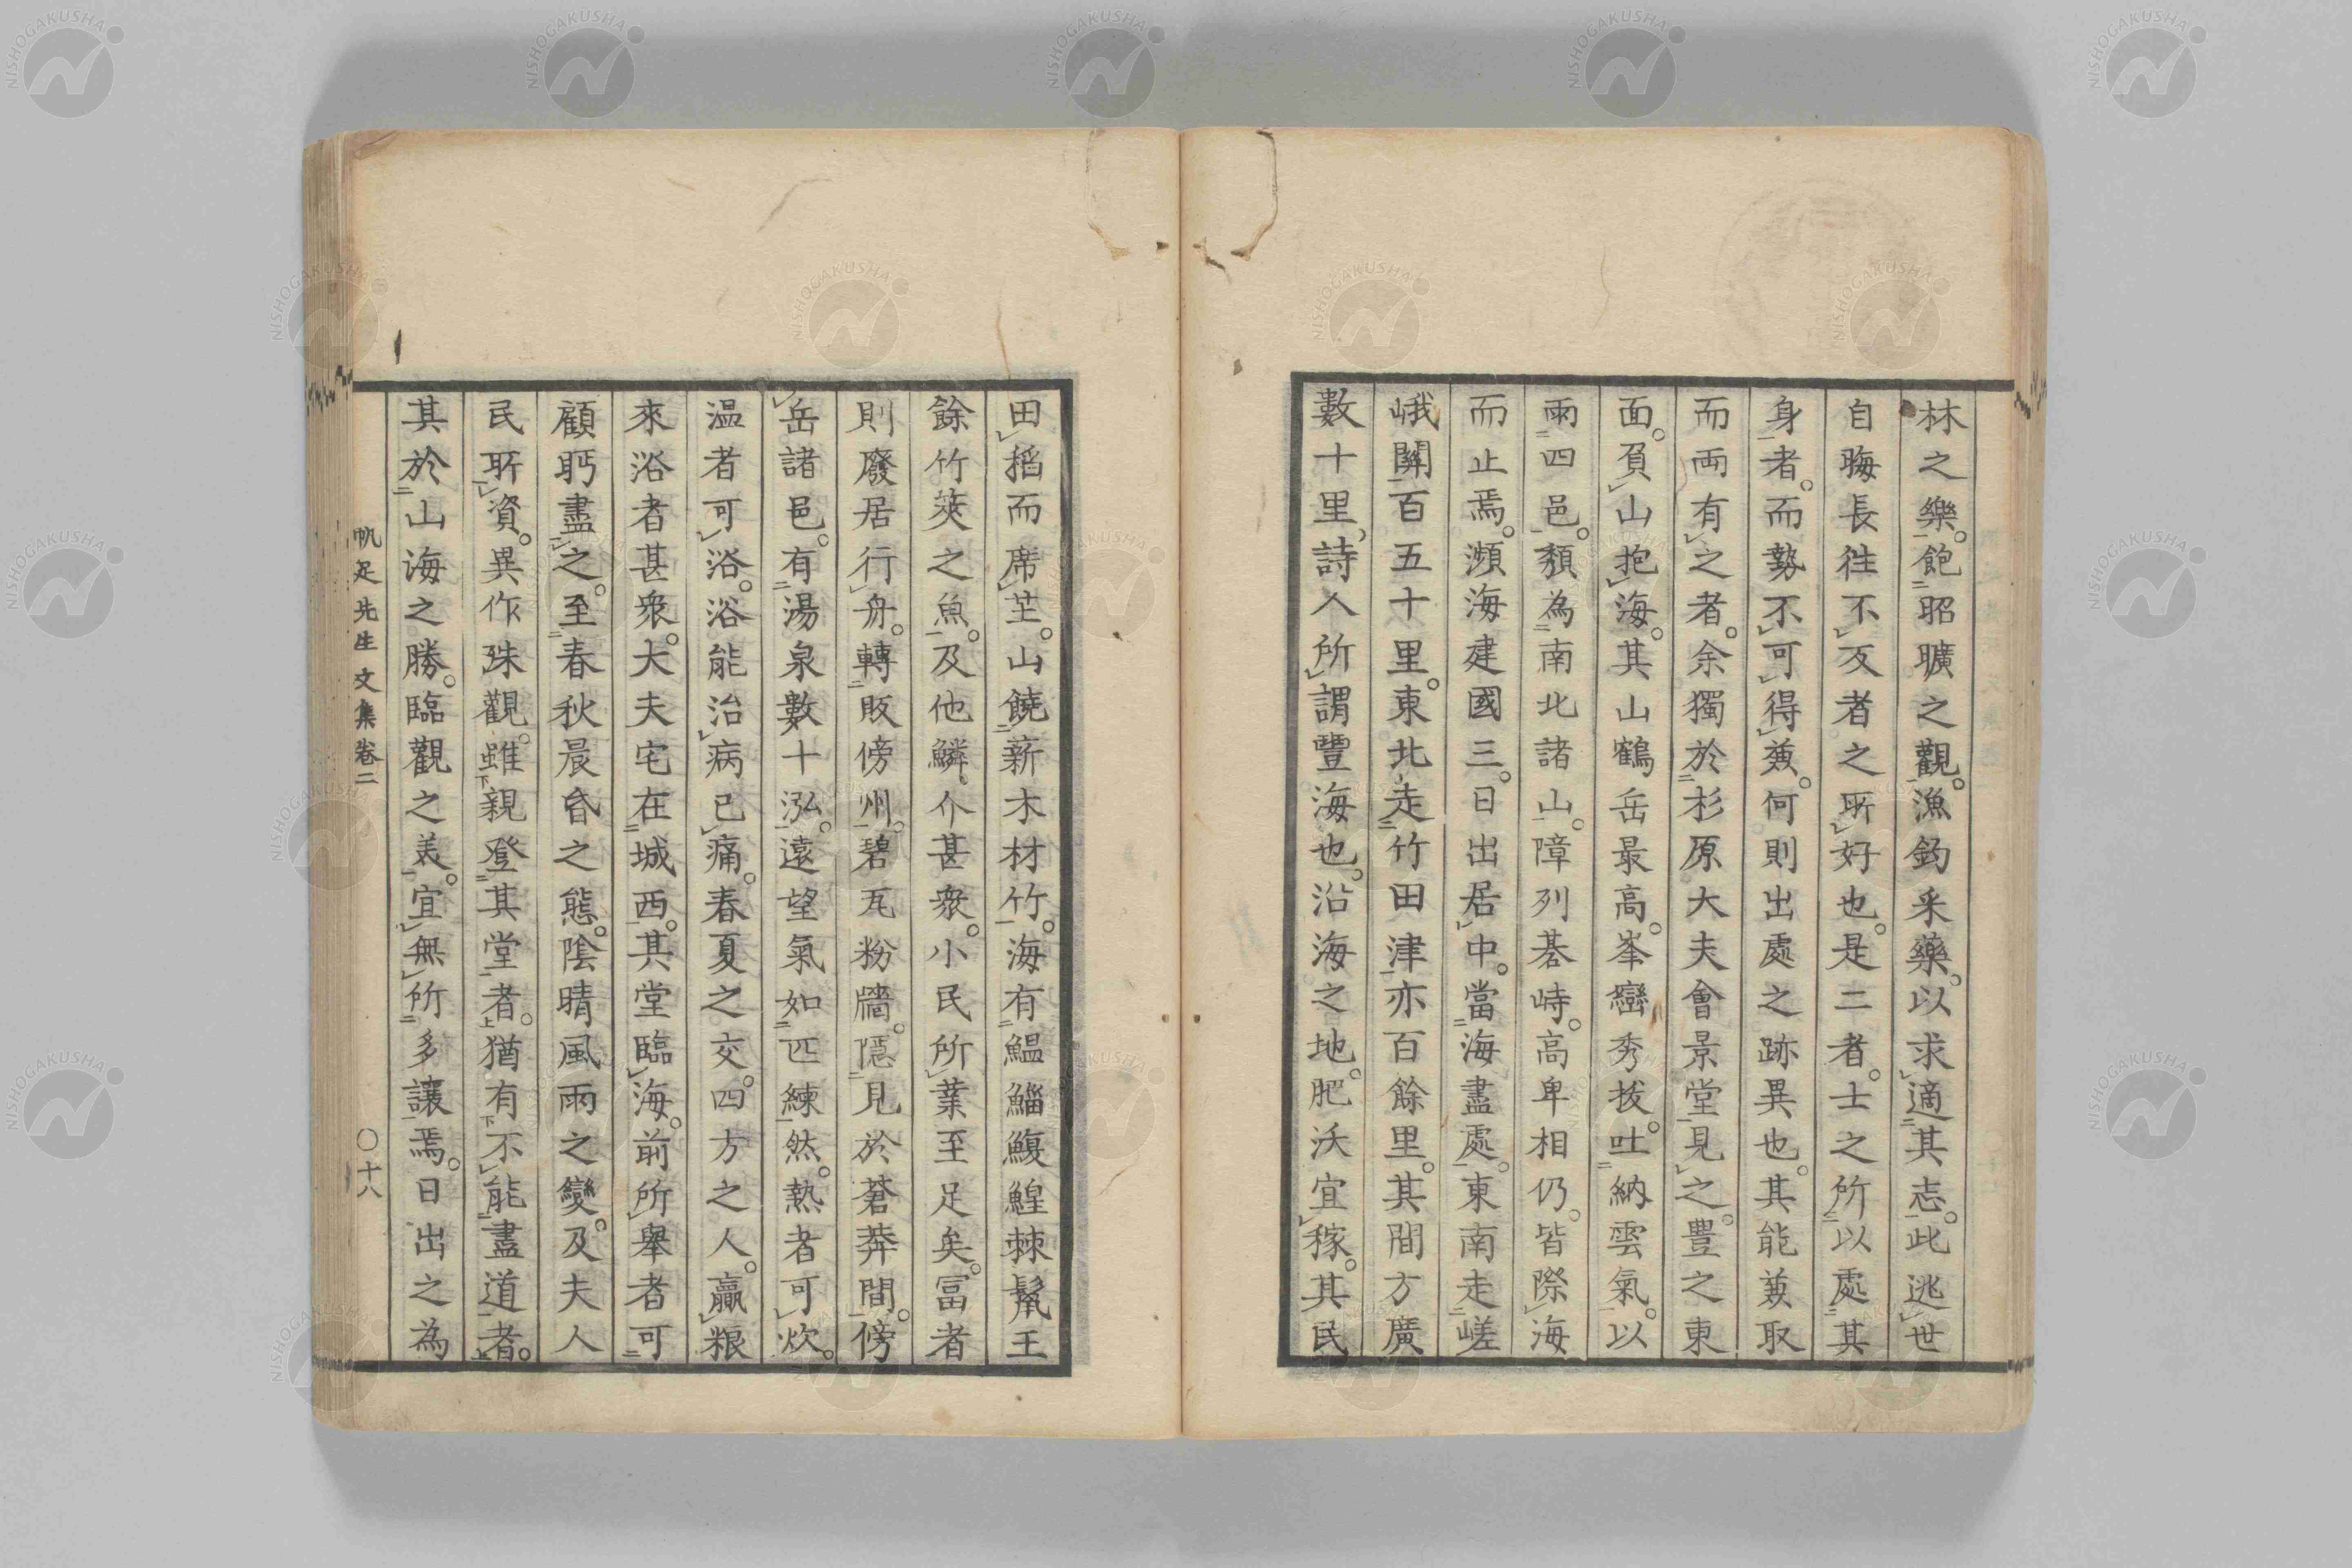 林之樂。飽昭曠之觀。漁釣采藥。以求適其志。此逃世
自晦長徃不反者之所好也。是二者。士之所以處其
身者。而勢不可得兼。何則出處之跡異也。其能兼取
而両有之者。余獨於杉原大夫會景堂見之。豊之東
面。負山抱海。其山鶴岳最高。峯巒秀拔。吐納雲氣。以
雨四邑。頽為南北諸山。障列碁峙。高卑相仍。皆際海
而止焉。瀕海建國三。日出居中。當海盡處。東南走嵯
峨關百五十里。東北走竹田津亦百餘里。其間方廣
數十里、詩人所謂豐海也。沿海之地。肥沃宜稼。其民
田稻而席芏。山饒薪木材竹。海有鰮鯔鰒鰉棘鬣王
餘竹筴之魚。及他鱗。介甚衆。小民所業至足矣。冨者
則廢居行舟。轉販傍州。碧瓦粉牆。隱見於蒼莽間。傍
岳諸邑。有湯泉數十泓。遠望氣如匹練然。熱者可炊。
温者可浴。浴能治病已痛。春夏之交。四方之人。贏粮
來浴者甚衆。大夫宅在城西。其堂臨海。前所舉者可
顧眄盡之。至春秋晨昏之態。陰晴風雨之變。及夫人
民所資。異作殊觀。雖親登其堂者。猶有不能盡道者。
其於山海之勝。臨觀之美。宜無所多讓焉。日出之為
帆足先生文集卷二
〇十八
NISHOGAKUSHA